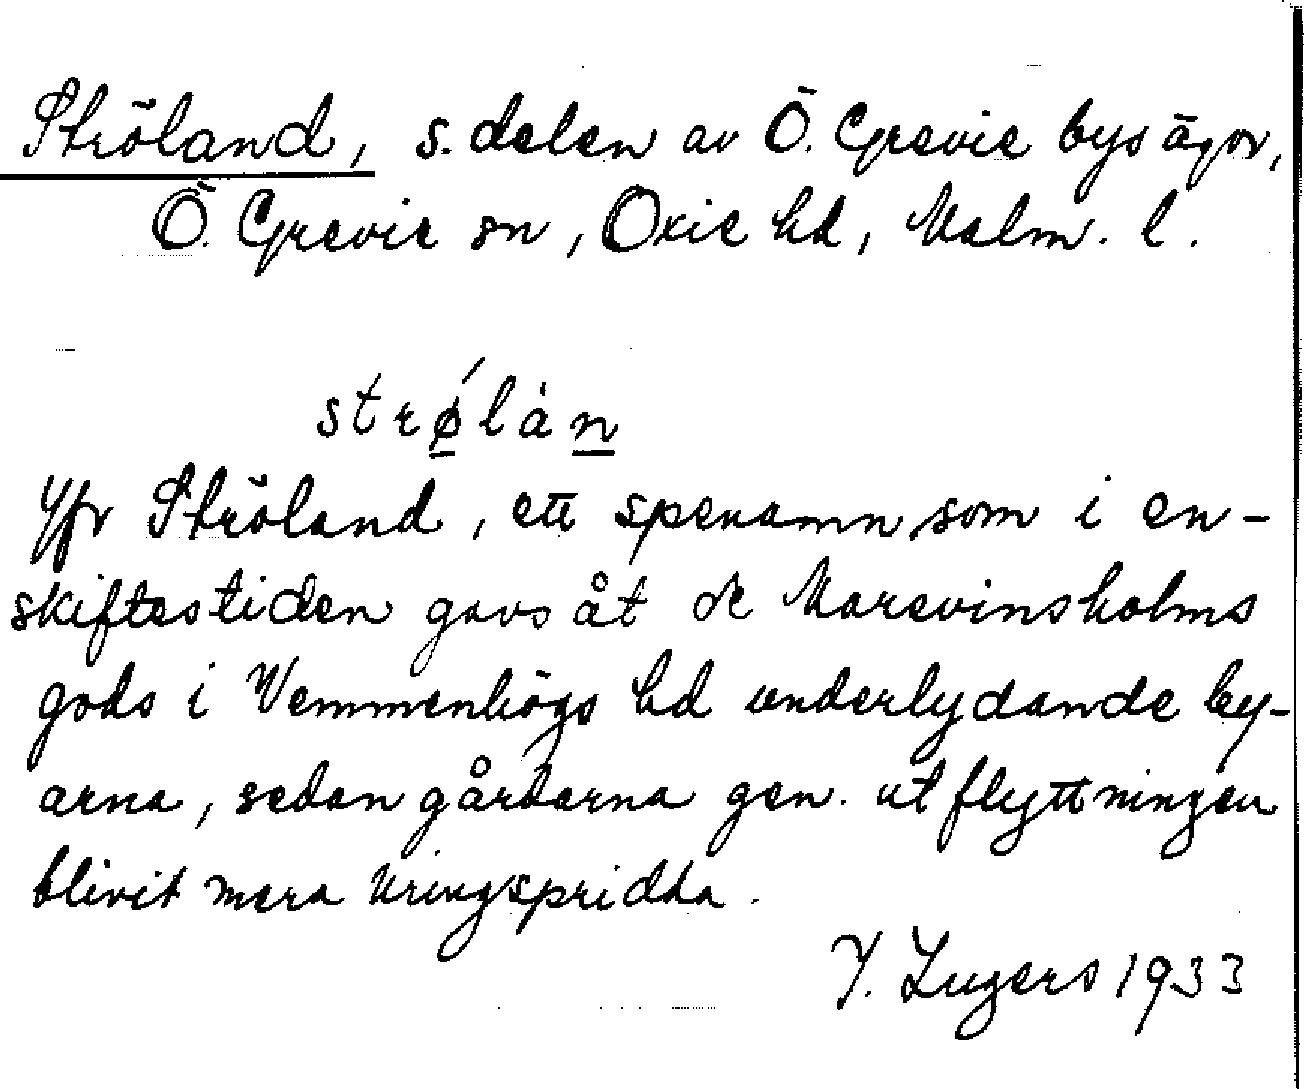 Ströland, s. delen av Ö. Grevie bys ägor,
Ö. Grevie sn, Oxie hd, Malm. l.
strǿlàn
Jfr Ströland, ett spenamn som i en-
skiftestiden gavs åt de Marsvinsholms
gods i Vemmenhögs hd underlydande by-
arna, sedan gårdarna gen. utflyttningen
blivit mera kringspridda.
J. Ingers 1933